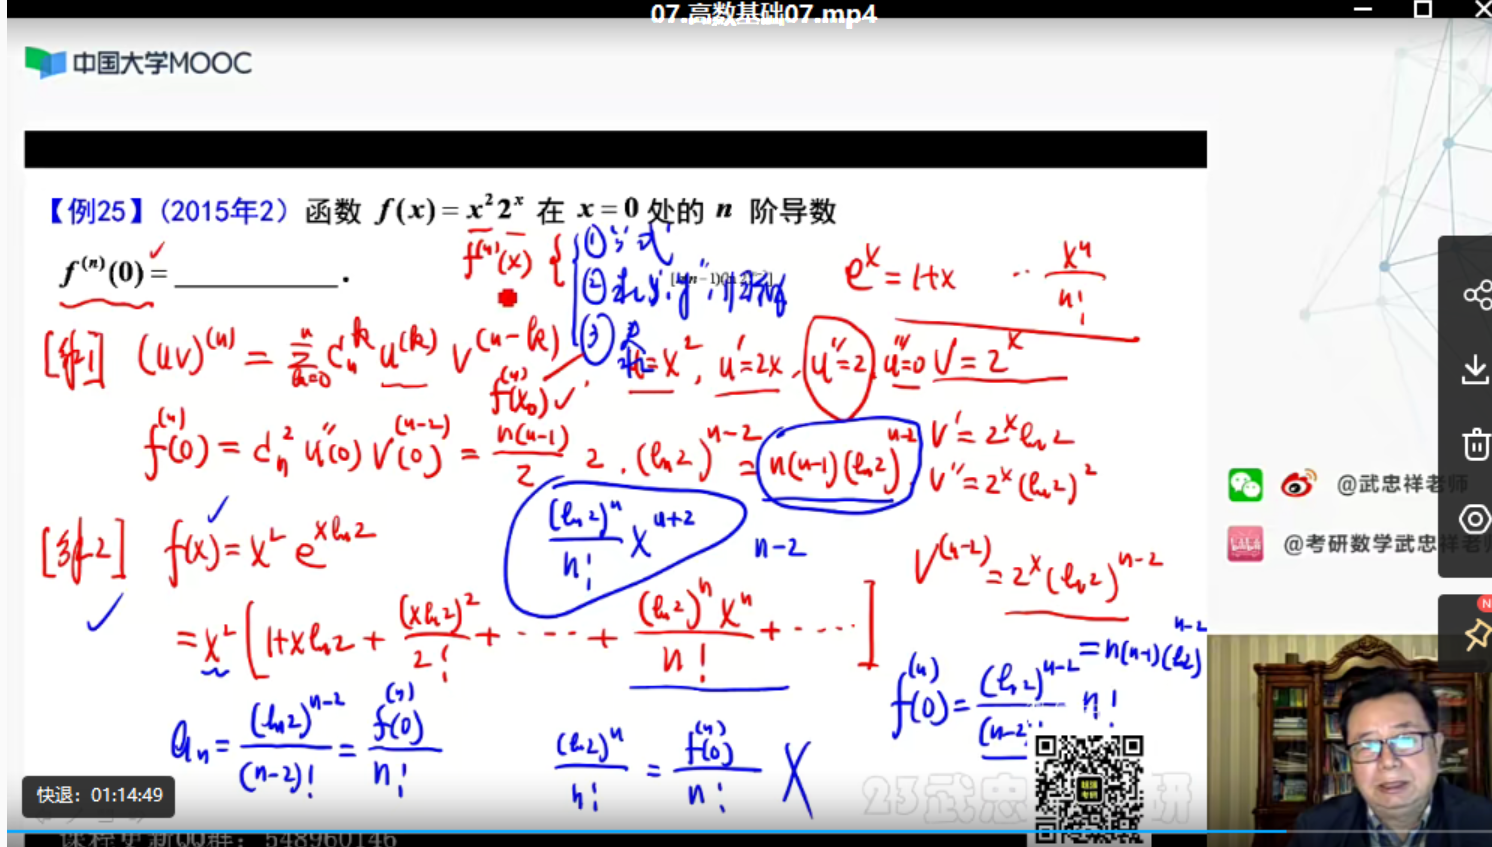 07.高数基础07.mp4
中国大学MOOC
【例25】(2015年2) 函数 f(x) = x²2ˣ 在 x = 0 处的 n 阶导数
f⁽ⁿ⁾(0) = ____________.
f⁽ⁿ⁾(x)
① 公式
②
③
eˣ = 1+x ⋯ xⁿ/n!
[解1] (uv)⁽ⁿ⁾ = Σₖ₌₀ⁿ Cₙᵏ u⁽ᵏ⁾ v⁽ⁿ⁻ᵏ⁾
f⁽ⁿ⁾(x₀) ✓
u=x², u′=2x, u″=2, u‴=0 V=2ˣ
f⁽ⁿ⁾(0) = Cₙ² u″(0) V⁽ⁿ⁻²⁾(0) = n(n-1)/2 2·(ln2)ⁿ⁻² = n(n-1)(ln2)ⁿ⁻²
V′=2ˣln2
V″=2ˣ(ln2)²
V⁽ⁿ⁻²⁾ = 2ˣ(ln2)ⁿ⁻²
[解2] f(x) = x² eˣˡⁿ²
(ln2)ⁿ/n! xⁿ⁺² n-2
= x² [1+xln2 + (xln2)²/2! + ⋯⋯ + (ln2)ⁿxⁿ/n! + ⋯⋯]
aₙ = (ln2)ⁿ⁻²/(n-2)! = f⁽ⁿ⁾(0)/n!
(ln2)ⁿ/n! = f⁽ⁿ⁾(0)/n! X
f⁽ⁿ⁾(0) = (ln2)ⁿ⁻²/(n-2)! n!
= n(n-1)(ln2)ⁿ⁻²
@武忠祥老师
@考研数学武忠祥老师
快退：01:14:49
23武忠 研
课程更新QQ群：548960146